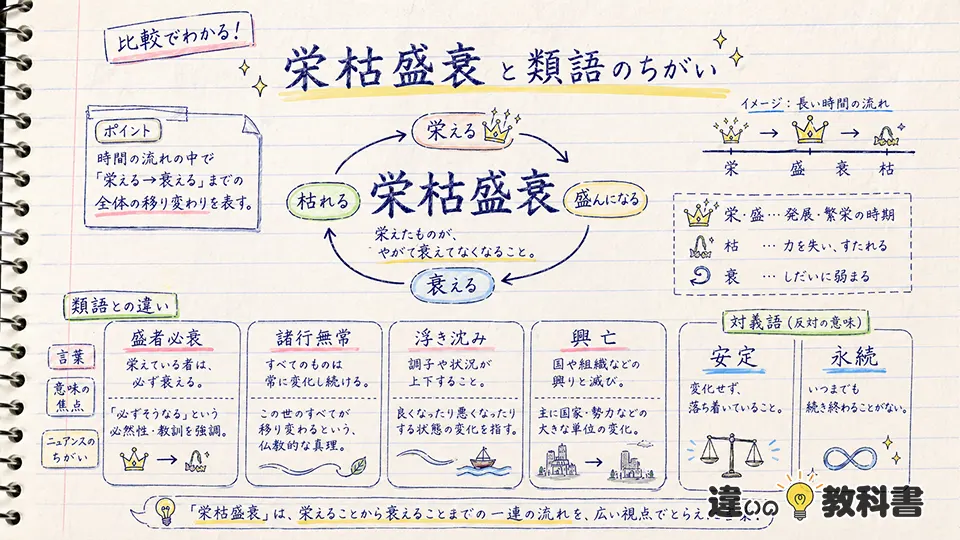 比較でわかる!
栄枯盛衰と類語のちがい
ポイント
時間の流れの中で
「栄える→衰える」までの
全体の移り変わりを表す。
栄える
枯れる
栄枯盛衰
盛んになる
栄えたものが、
やがて衰えてなくなること。
衰える
イメージ:長い時間の流れ
栄 盛 衰 枯
栄・盛…発展・繁栄の時期
枯 …力を失い、すたれる
衰 …しだいに弱まる
類語との違い
言葉
意味の
焦点
ニュアンスの
ちがい
盛者必衰
栄えている者は、
必ず衰える。
「必ずそうなる」という
必然性・教訓を強調。
諸行無常
すべてのものは
常に変化し続ける。
この世のすべてが
移り変わるという、
仏教的な真理。
浮き沈み
調子や状況が
上下すること。
良くなったり悪くなったり
する状態の変化を指す。
興亡
国や組織などの
興りと滅び。
主に国家・勢力などの
大きな単位の変化。
対義語(反対の意味)
安定
変化せず、
落ち着いていること。
永続
いつまでも
続き終わることがない。
「栄枯盛衰」は、栄えることから衰えることまでの一連の流れを、広い視点でとらえ
違いの教科書